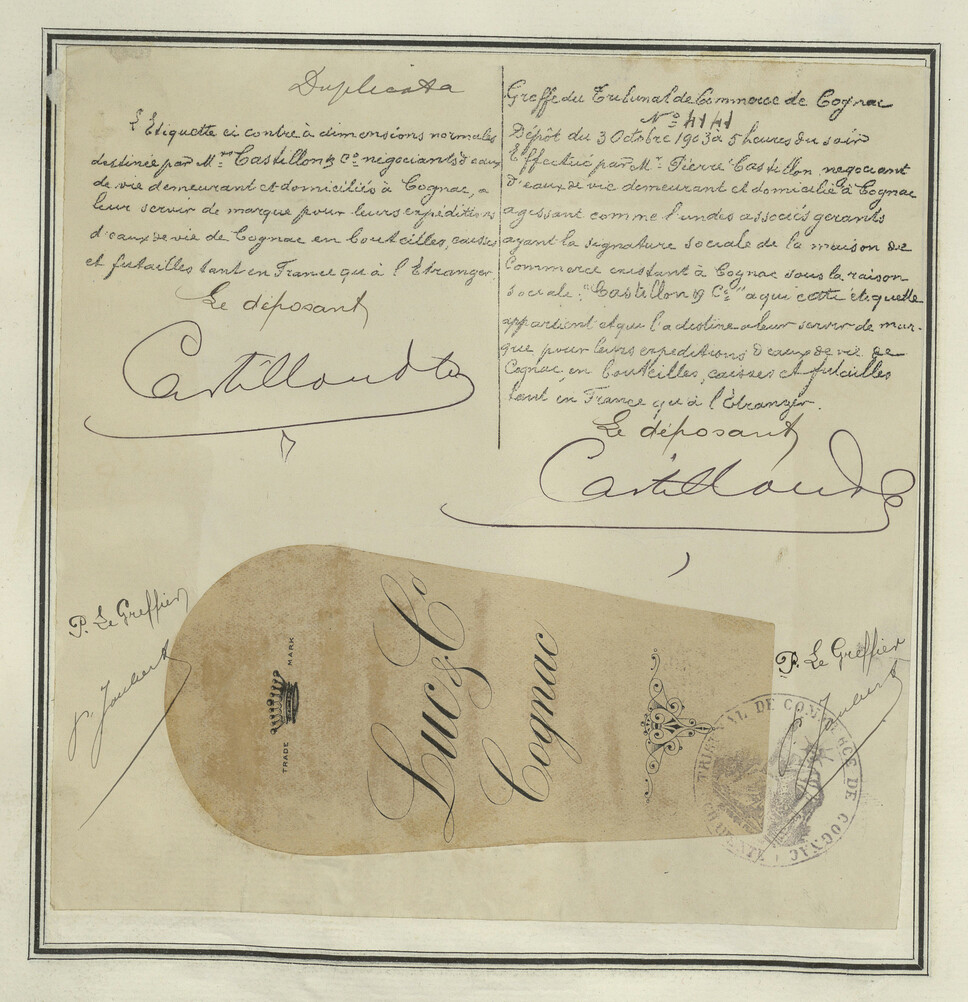 Duplicata
L'Etiquette ci contre à dimensions normales
destinée par Mrs Castillon & Co négociants d'eaux
de vie demeurant et domiciliés à Cognac, a
leur servir de marque pour leurs expéditions
d'eaux de vie de Cognac en bouteilles, caisses
et futailles tant en France qu'à l'Etranger.
Le déposant
Castillon & Co
Greffe du Tribunal de Commerce de Cognac
No 4141
Dépôt du 3 Octobre 1903 à 5 heures du soir
Effectué par Mr Pierre Castillon négociant
d'eaux de vie demeurant et domicilié à Cognac
agissant comme l'un des associés gerants
ayant la signature sociale de la maison de
Commerce existant à Cognac sous la raison
sociale: "Castillon & Co" a qui cette étiquette
appartient et qui l'a destine a leur servir de mar-
que pour leurs expeditions d'eaux de vie de
Cognac en bouteilles, caisses et futailles
tant en France qu'à l'Etranger.
Le déposant
Castillon &
P. Le Greffier
Joubert
TRADE MARK
Luc & Co
Cognac
P. Le Greffier
TRIBUNAL DE COMMERCE DE COGNAC